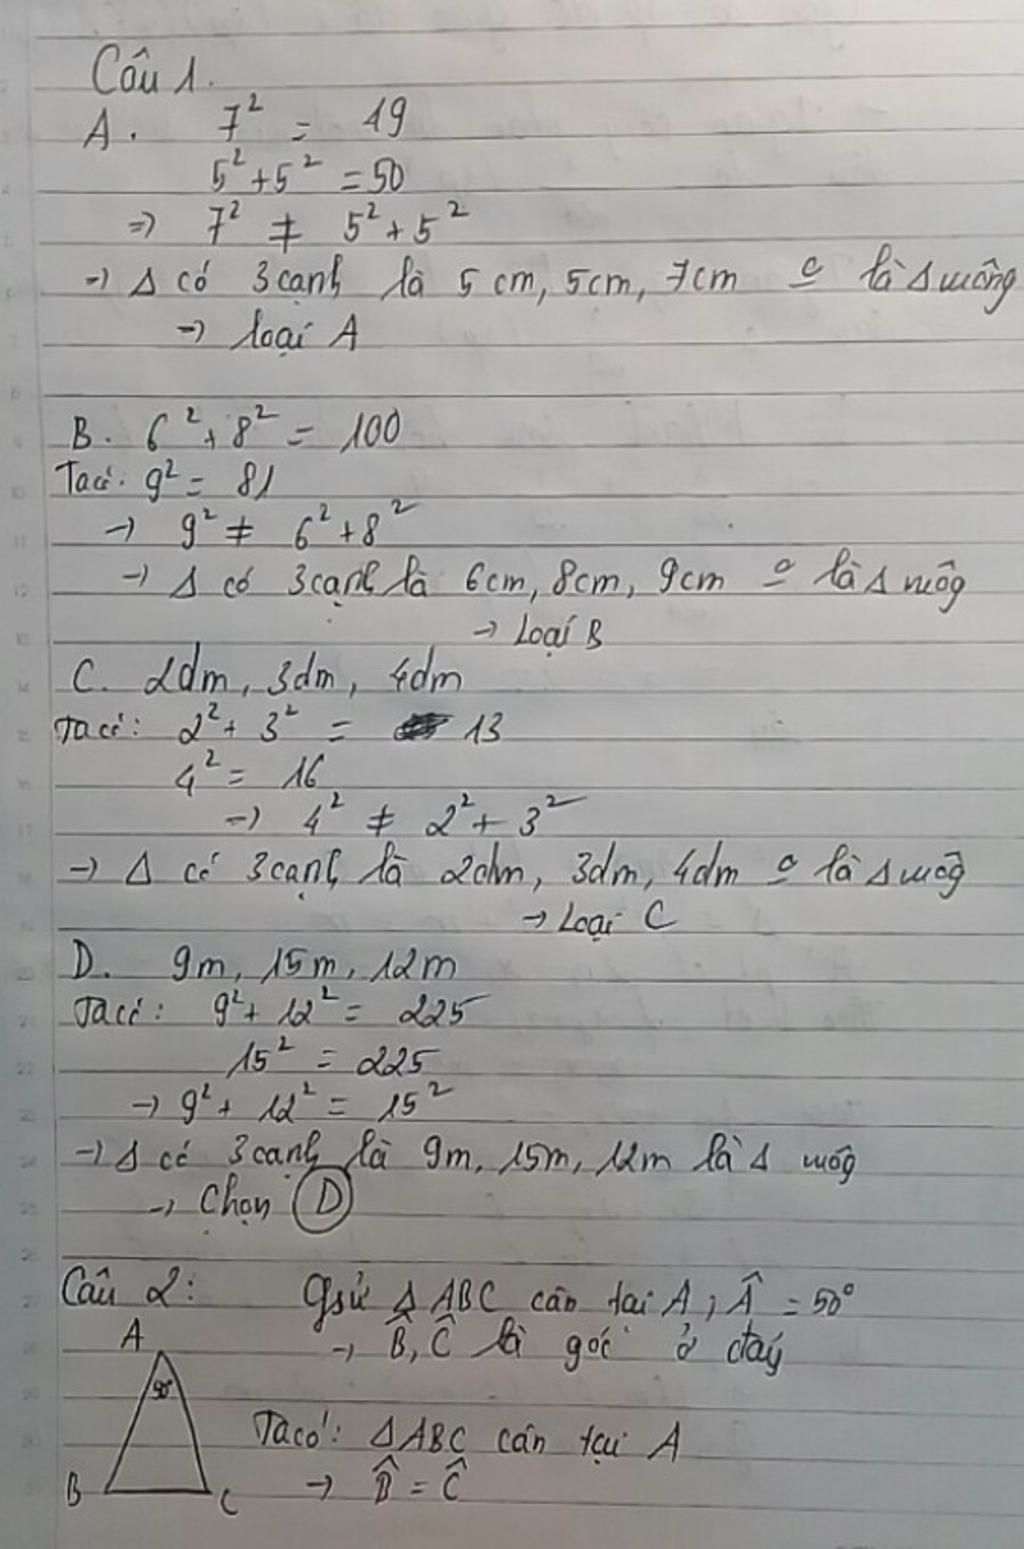 Câu 1.
A. 7² = 19
5² + 5² = 50
=) 7² ≠ 5² + 5²
-) Δ có 3 cạnh là 5 cm, 5cm, 7cm là Δ vuông
-) loại A
B. 6² + 8² = 100
Ta có: 9² = 81
-) 9² ≠ 6² + 8²
-) Δ có 3 cạnh là 6cm, 8cm, 9cm là Δ vuôg
-) Loại B
C. 2dm, 3dm, 4dm
Ta có: 2² + 3² = 13
4² = 16
-) 4² ≠ 2² + 3²
-) Δ có 3 cạnh là 2dm, 3dm, 4dm là Δ vuôg
-) Loại C
D. 9m, 15m, 12m
Ta có: 9² + 12² = 225
15² = 225
-) 9² + 12² = 15²
-) Δ có 3 cạnh là 9m, 15m, 12m là Δ vuôg
-) Chọn D
Câu 2: Gsử Δ ABC cân tại A, Â = 50°
A -) B̂, Ĉ là góc ở đáy
50°
Ta có: ΔABC cân tại A
B C -) B̂ = Ĉ